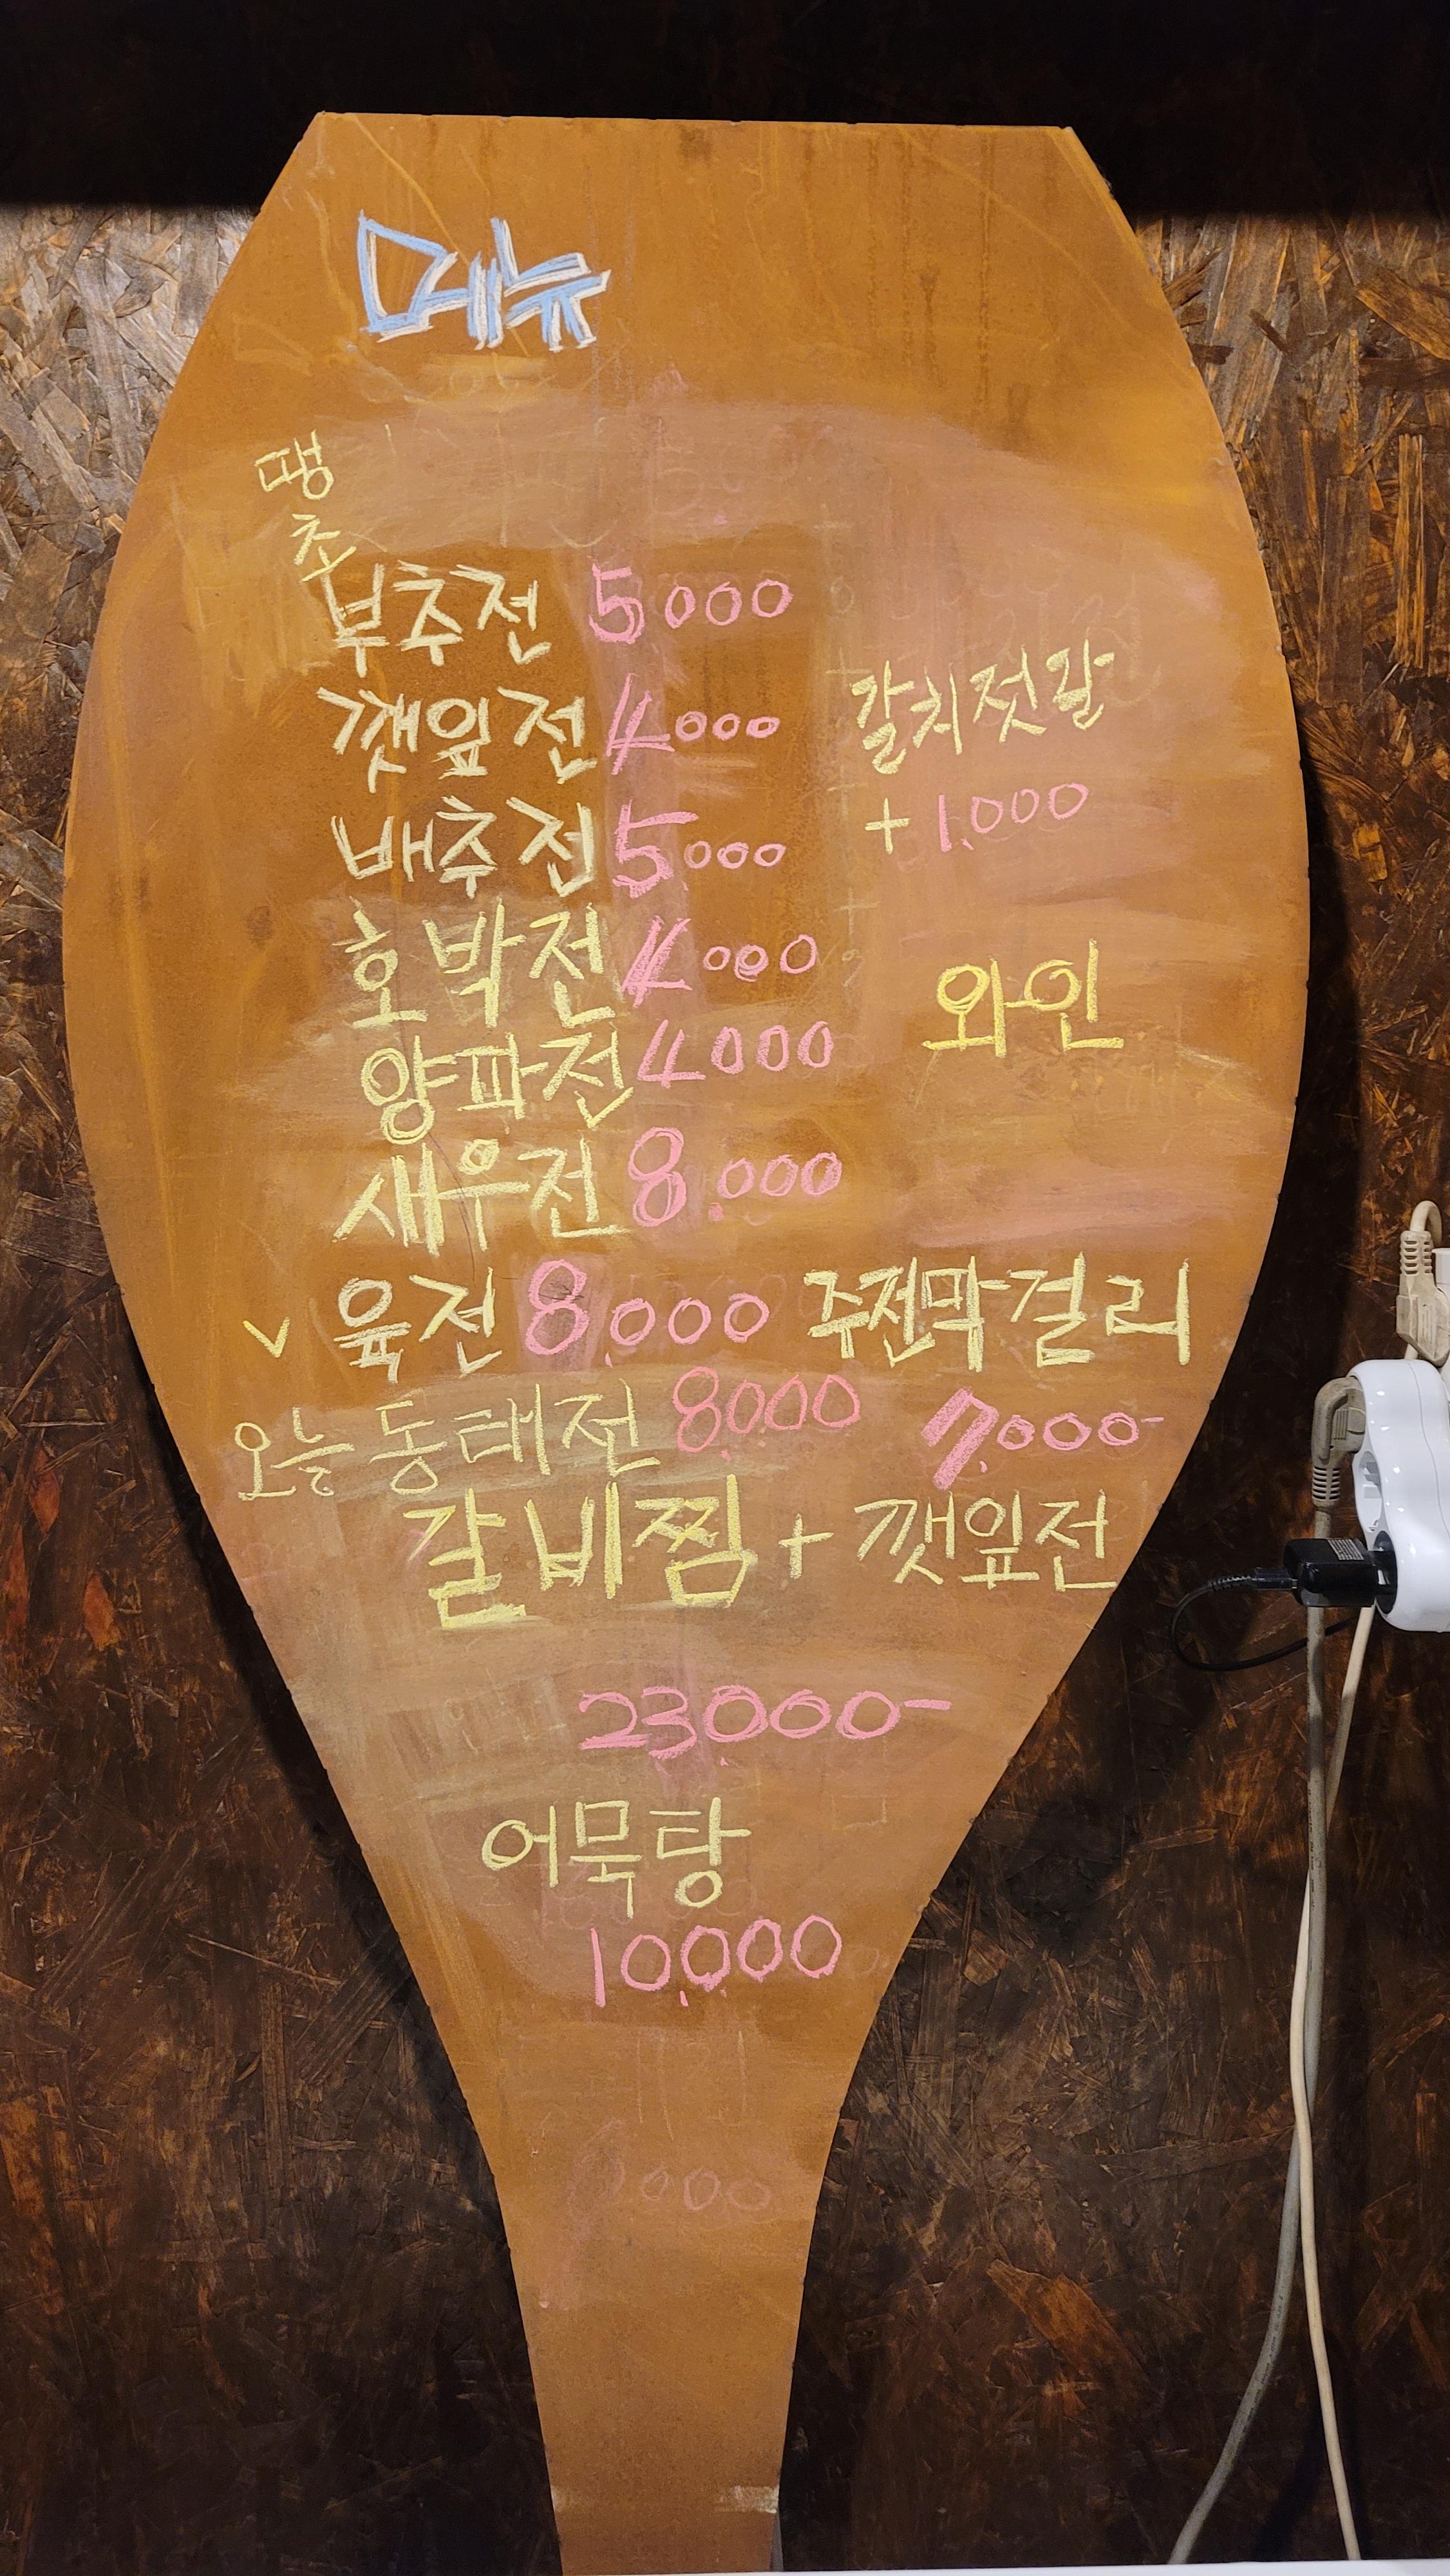 메뉴
땡
초
부추전 5000
깻잎전 4000
갈치젓갈
배추전 5000
+ 1.000
호박전 4000
와인
양파전 4000
새우전 8.000
v 육전 8.000 주전막걸리
오늘 동태전 8.000 7.000-
갈비찜 + 깻잎전
23.000-
어묵탕
10.000